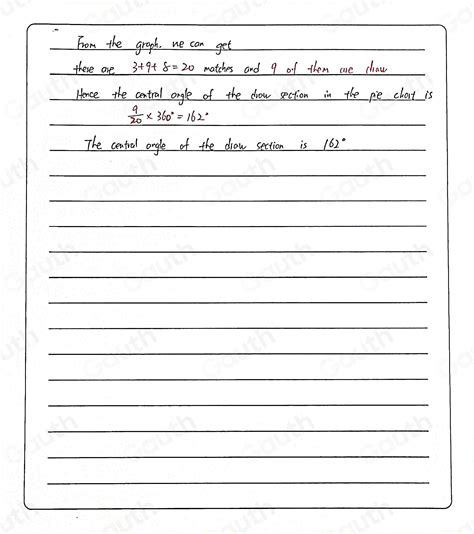 From the graph. we can get
there are 3+9+8=20 matches and 9 of them are draw
Hence the central angle of the draw section in the pie chart is
9/20 × 360° = 162°
The central angle of the draw section is 162°